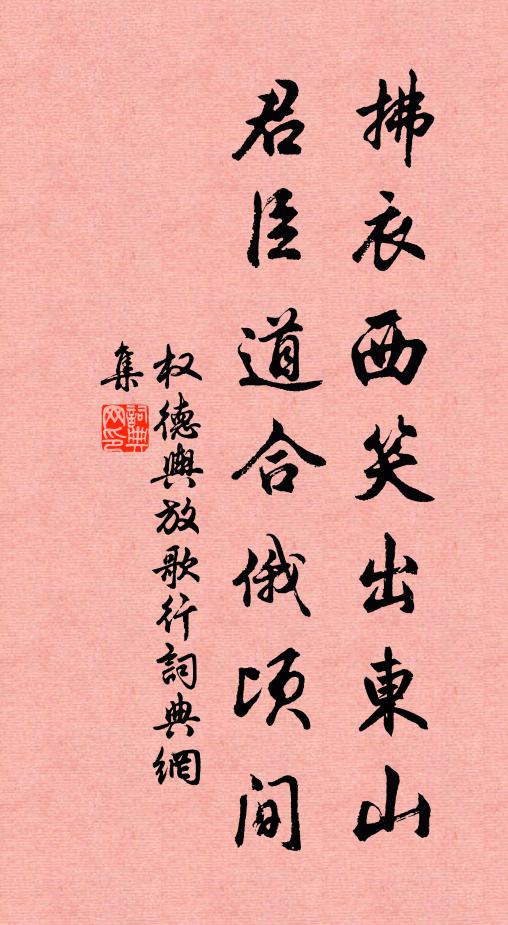 拂衣西笑出東山
君臣道合俄頃间
权德輿放歌行詞典網
集
詞典
网印